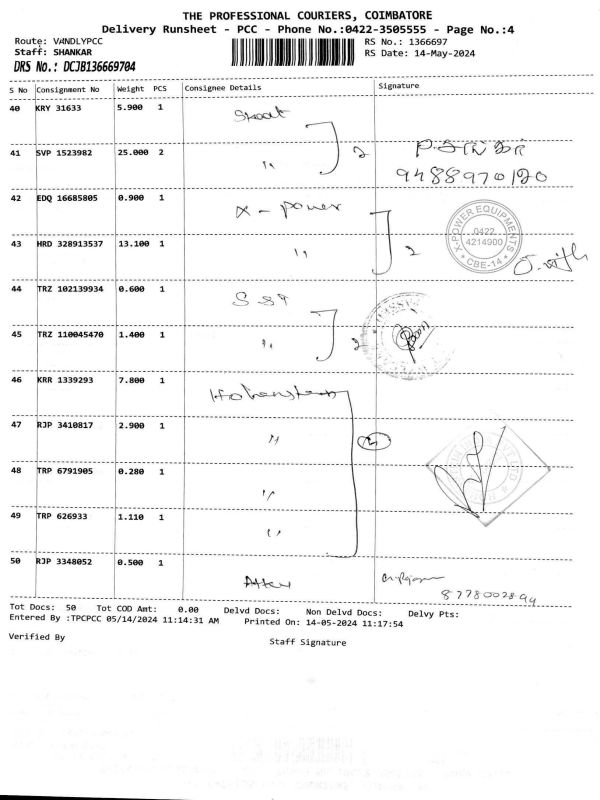 THE PROFESSIONAL COURIERS, COIMBATORE
Delivery Runsheet - PCC - Phone No.:0422-3505555 - Page No.:4
Route: VANDLYPCC
RS No.: 1366697
Staff: SHANKAR
RS Date: 14-May-2024
DRS No.: DCJB136669704
S No Consignment No Weight PCS Consignee Details Signature
40 KRY 31633 5.900 1
41 SVP 1523982 25.000 2 " 2
9488970120
42 EDQ 16685805 0.900 1 X-power
X-POWER EQUIPMENTS
0422
4214900
* CBE-14 *
43 HRD 328913537 13.100 1 " 2
44 TRZ 102139934 0.600 1 S ST
45 TRZ 110045470 1.400 1 " 2
46 KRR 1339293 7.800 1 Hohenstein
47 RJP 3410817 2.900 1 "
48 TRP 6791905 0.280 1 "
49 TRP 626933 1.110 1 "
50 RJP 3348052 0.500 1
8778002894
Tot Docs: 50 Tot COD Amt: 0.00 Delvd Docs: Non Delvd Docs: Delvy Pts:
Entered By :TPCPCC 05/14/2024 11:14:31 AM Printed On: 14-05-2024 11:17:54
Verified By
Staff Signature